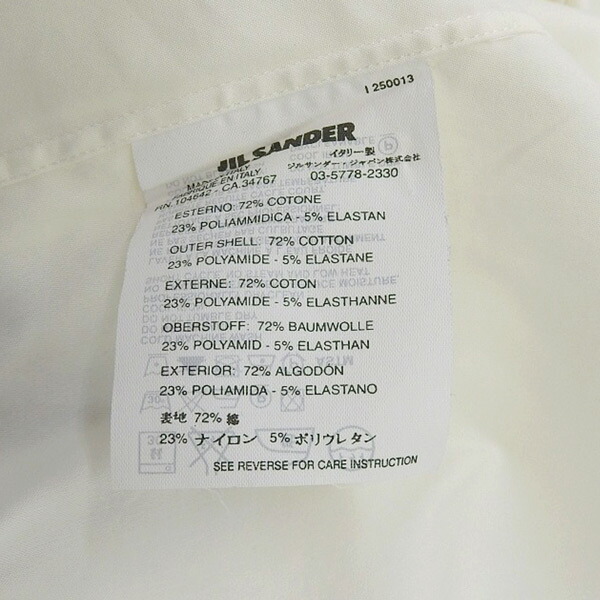 I 250013
JIL SANDER
MADE IN ITALY
RN. 104642 - CA.34767
イタリー製
ジルサンダー・ジャパン株式会社
03-5778-2330
ESTERNO: 72% COTONE
23% POLIAMMIDICA - 5% ELASTAN
OUTER SHELL: 72% COTTON
23% POLYAMIDE - 5% ELASTANE
EXTERNE: 72% COTON
23% POLYAMIDE - 5% ELASTHANNE
OBERSTOFF: 72% BAUMWOLLE
23% POLYAMID - 5% ELASTHAN
EXTERIOR: 72% ALGODÓN
23% POLIAMIDA - 5% ELASTANO
表地 72% 綿
23% ナイロン 5% ポリウレタン
SEE REVERSE FOR CARE INSTRUCTION